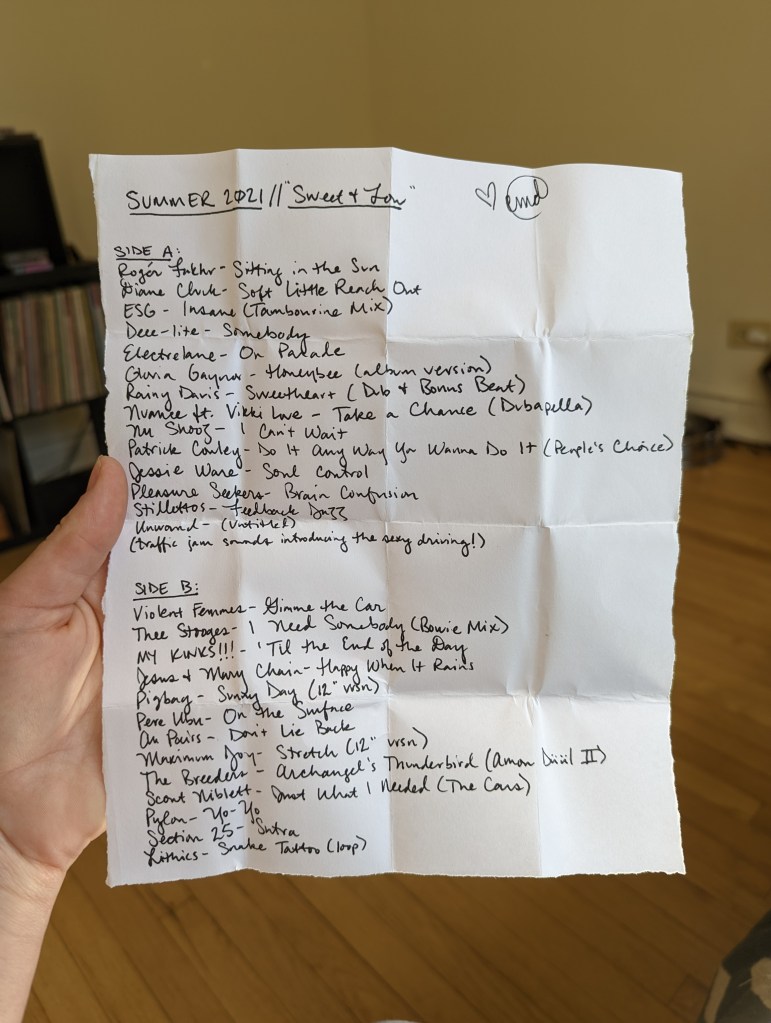 SUMMER 2021 // "Sweet & Low" ♡ emd
SIDE A:
Rogér Fakhr - Sitting in the Sun
Diane Cluck - Soft Little Reach Out
ESG - Insane (Tambourine Mix)
Deee-lite - Somebody
Electrelane - On Parade
Gloria Gaynor - Honeybee (album version)
Rainy Davis - Sweetheart (Dub & Bonus Beat)
Nuance ft. Vikki Love - Take a Chance (Dubapella)
Nu Shooz - I Can't Wait
Patrick Cowley - Do It Any Way You Wanna Do It (People's Choice)
Jessie Ware - Soul Control
Pleasure Seekers - Brain Confusion
Stillettos - Feedback Dazz
Unwound - (Untitled)
(traffic jam sounds introducing the sexy driving!)
SIDE B:
Violent Femmes - Gimme the Car
Thee Stooges - I Need Somebody (Bowie Mix)
MY KINKS!!! - 'Til the End of the Day
Jesus & Mary Chain - Happy When It Rains
Pigbag - Sunny Day (12" vrsn)
Pere Ubu - On the Surface
Au Pairs - Don't Lie Back
Maximum Joy - Stretch (12" vrsn)
The Breeders - Archangel's Thunderbird (Amon Düül II)
Scout Niblett - Just What I Needed (The Cars)
Pylon - Yo-Yo
Section 25 - Sutra
Lithics - Snake Tattoo (loop)